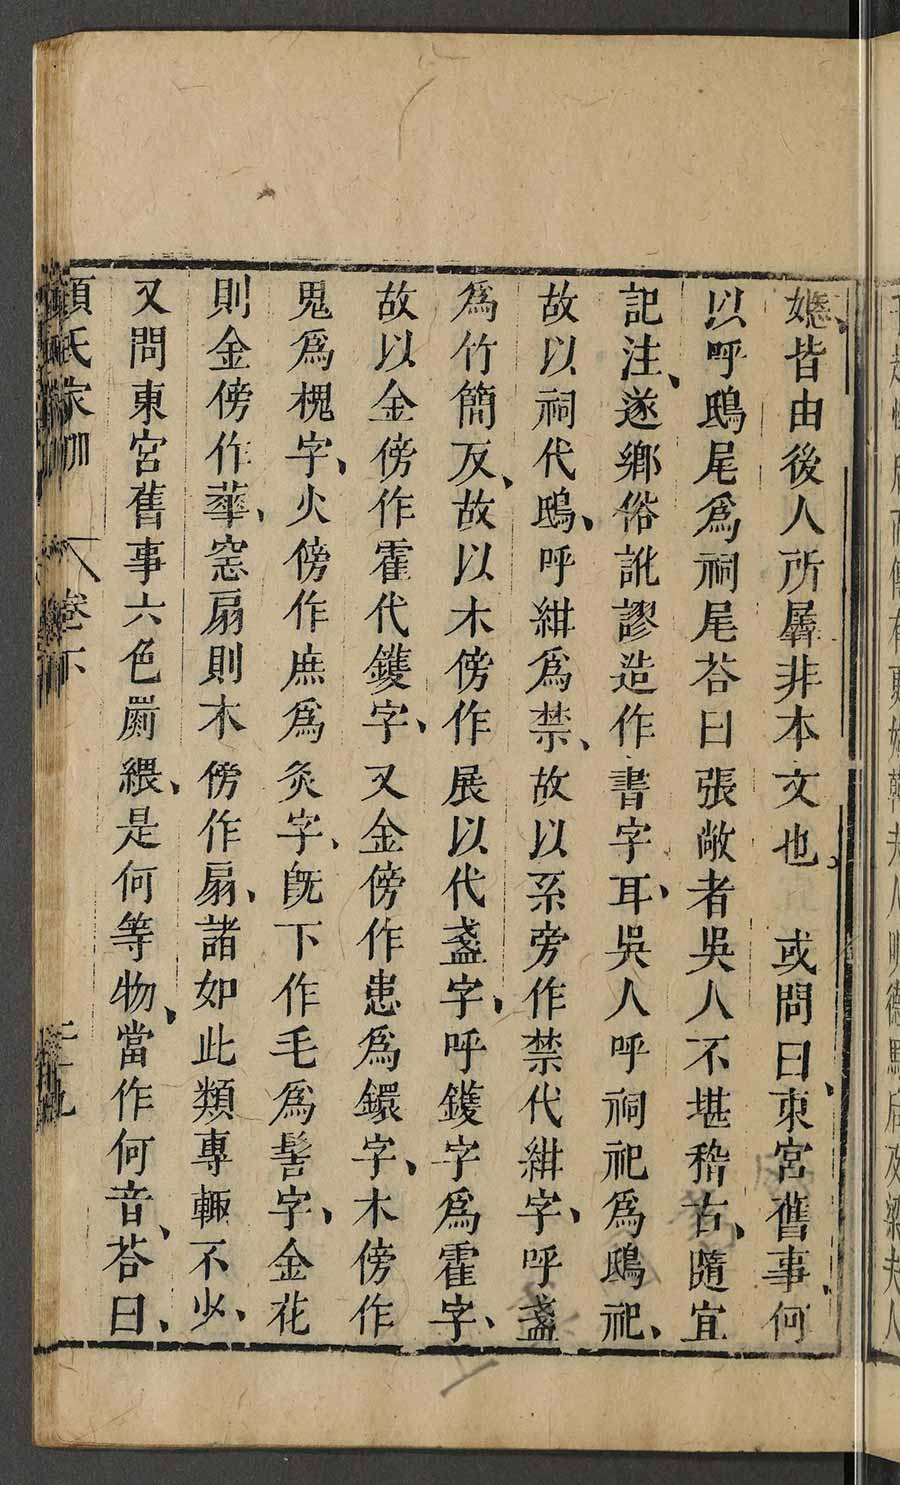 嫕皆由後人所羼非本文也。或問曰、東宮舊事、何
以呼鴟尾爲祠尾荅曰張敞者吳人不堪稽古、隨宜
記注、遂鄉俗訛謬造作書字耳、吳人呼祠祀爲鴟祀、
故以祠代鴟、呼紺爲禁、故以糸旁作禁代紺字、呼盞
爲竹簡反、故以木傍作展以代盞字、呼鑊字爲霍字、
故以金傍作霍代鑊字、又金傍作患爲鐶字、木傍作
鬼爲槐字、火傍作庶爲炙字、旣下作毛爲髻字、金花
則金傍作華、窓扇則木傍作扇、諸如此類專輒不少、
又問東宮舊事六色罽緦、是何等物、當作何音、荅曰、
顏氏家訓 卷下 二十九